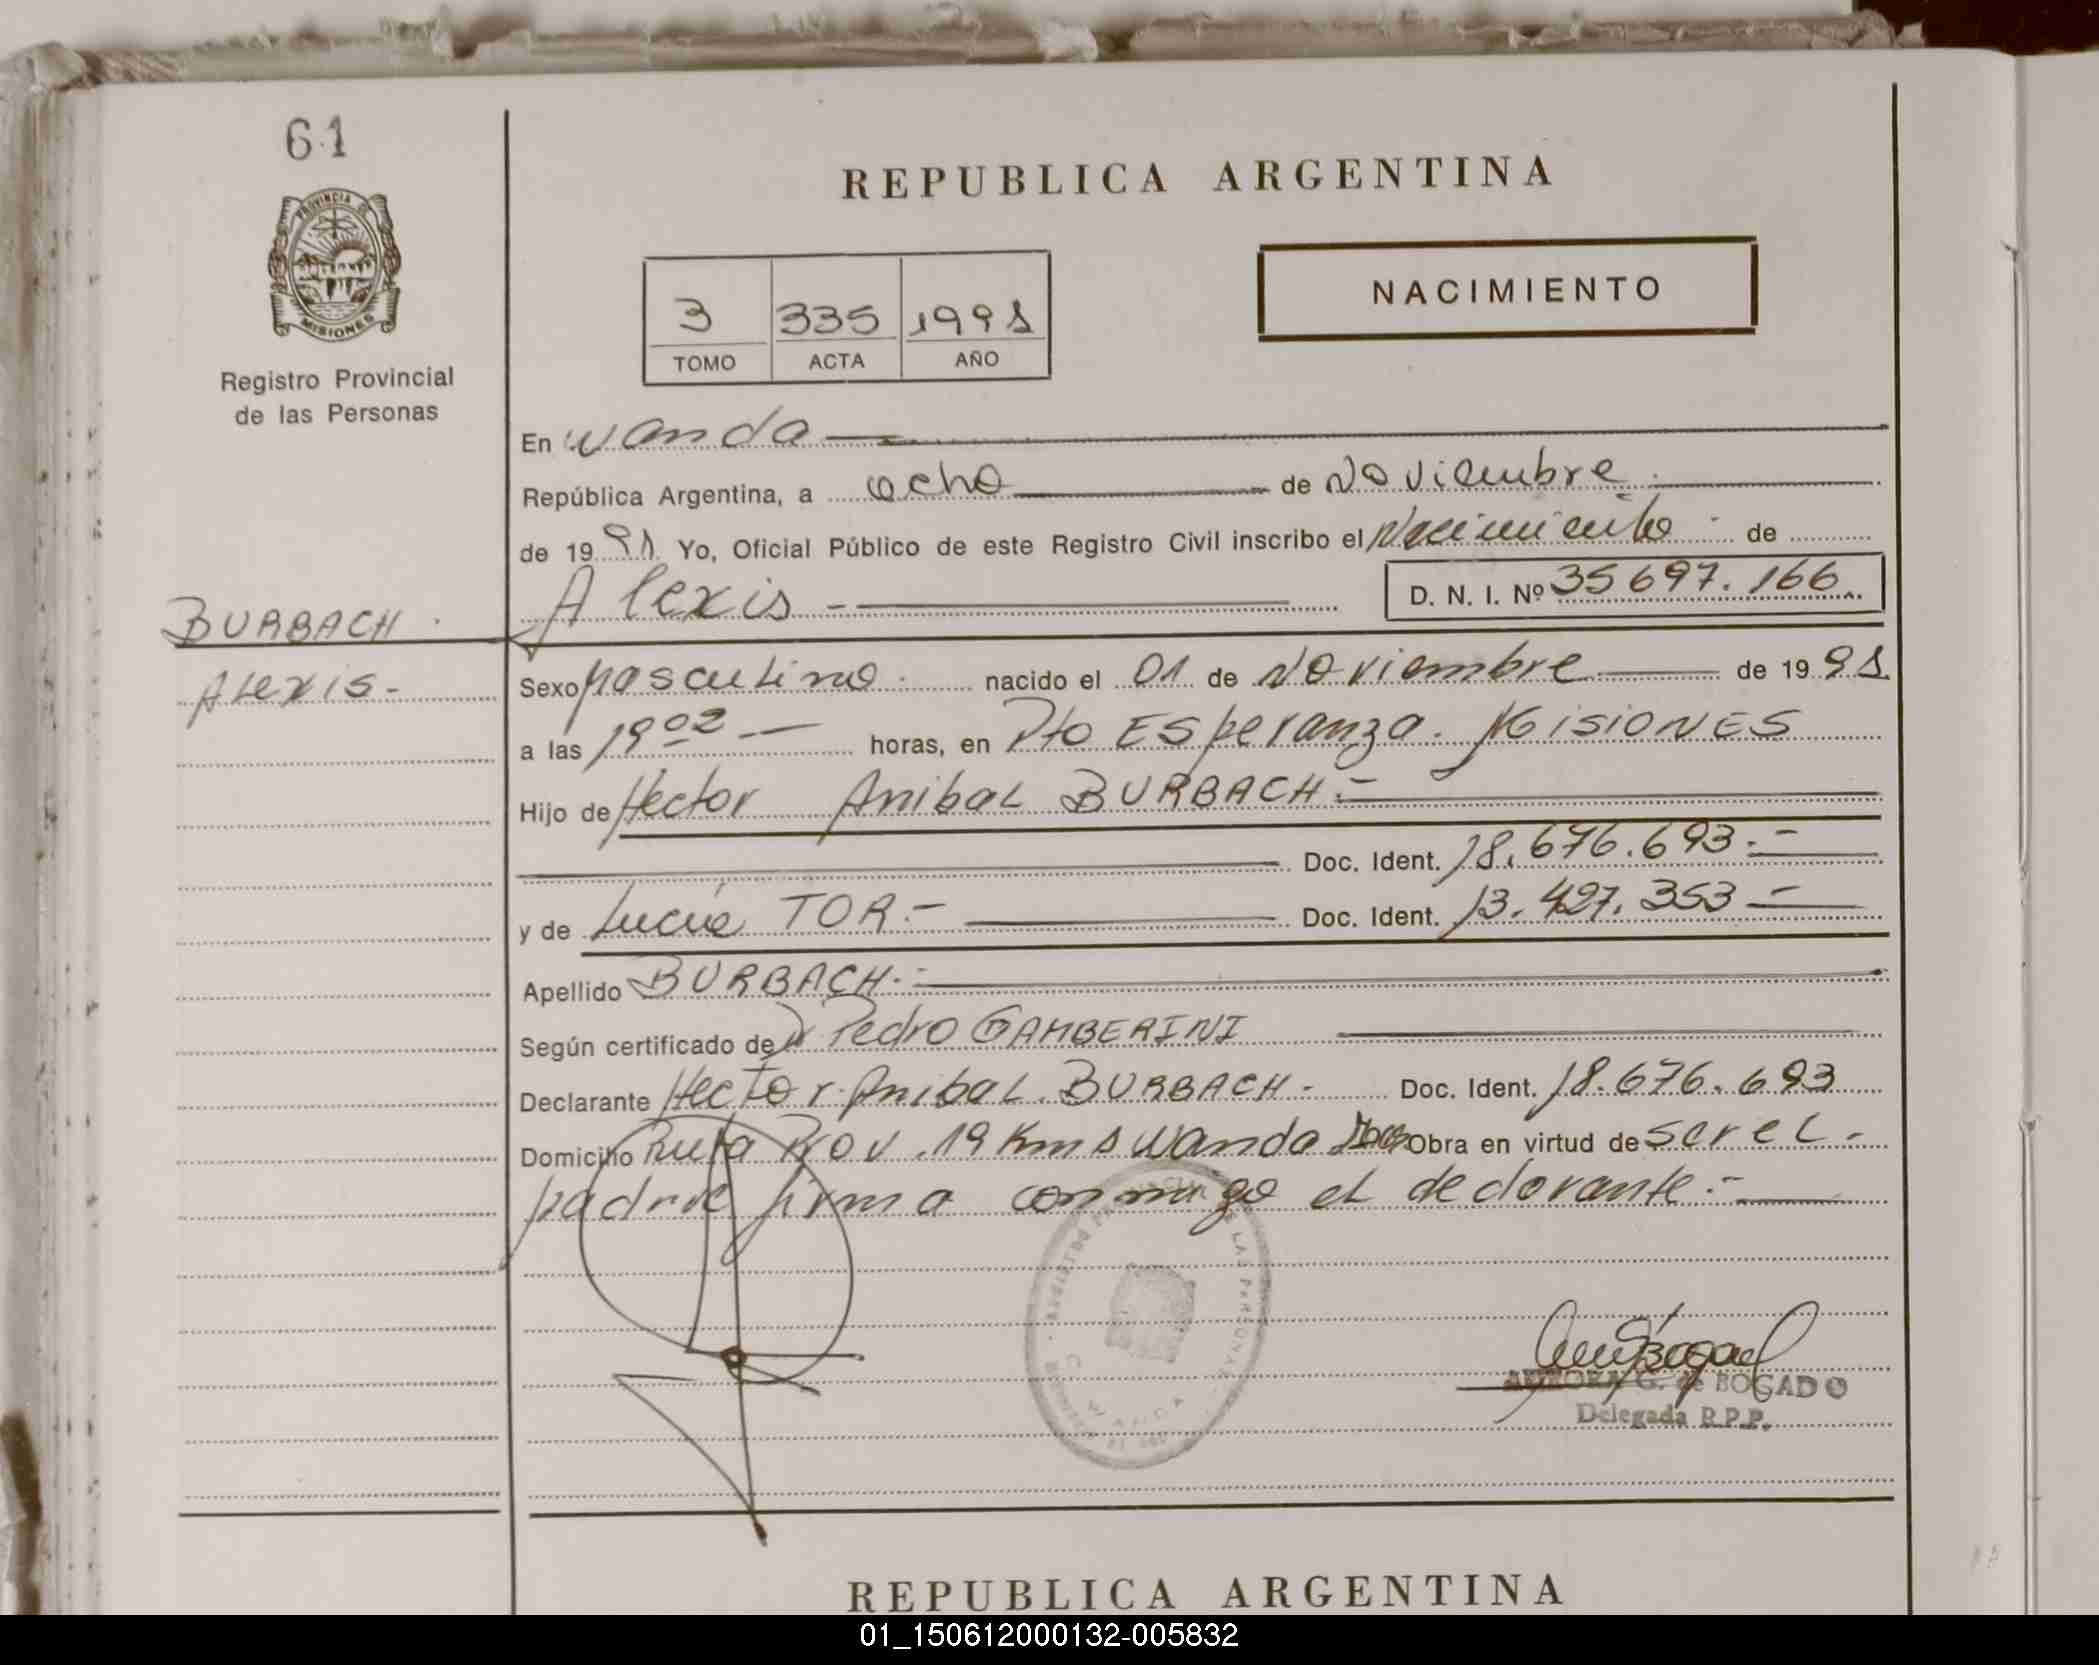 61
PROVINCIA DE
MISIONES
Registro Provincial
de las Personas
REPUBLICA ARGENTINA
3 335 1991
TOMO ACTA AÑO
NACIMIENTO
En Wanda
República Argentina, a ocho de Noviembre
de 1991 Yo, Oficial Público de este Registro Civil inscribo el Nacimiento de
Alexis D. N. I. Nº 35697.166
BURBACH
Alexis-
Sexo Masculino nacido el 01 de Noviembre de 1991
a las 19 02 horas, en Pto ESperanza. MISIONES
Hijo de Hector Anibal BURBACH.-
Doc. Ident. 18.676.693.-
y de Lucia TOR.- Doc. Ident. 13.427.353-
Apellido BURBACH.-
Según certificado de Dr Pedro GAMBERINI
Declarante Hector Anibal BURBACH- Doc. Ident. 18.676.693
Domicilio Ruta Prov. 19 Km 1 Wanda Obra en virtud de ser el-
padre firma conmigo el declarante.-
WANDA
AURORA G. de BOGADO
Delegada R.P.P.
REPUBLICA ARGENTINA
01_150612000132-005832